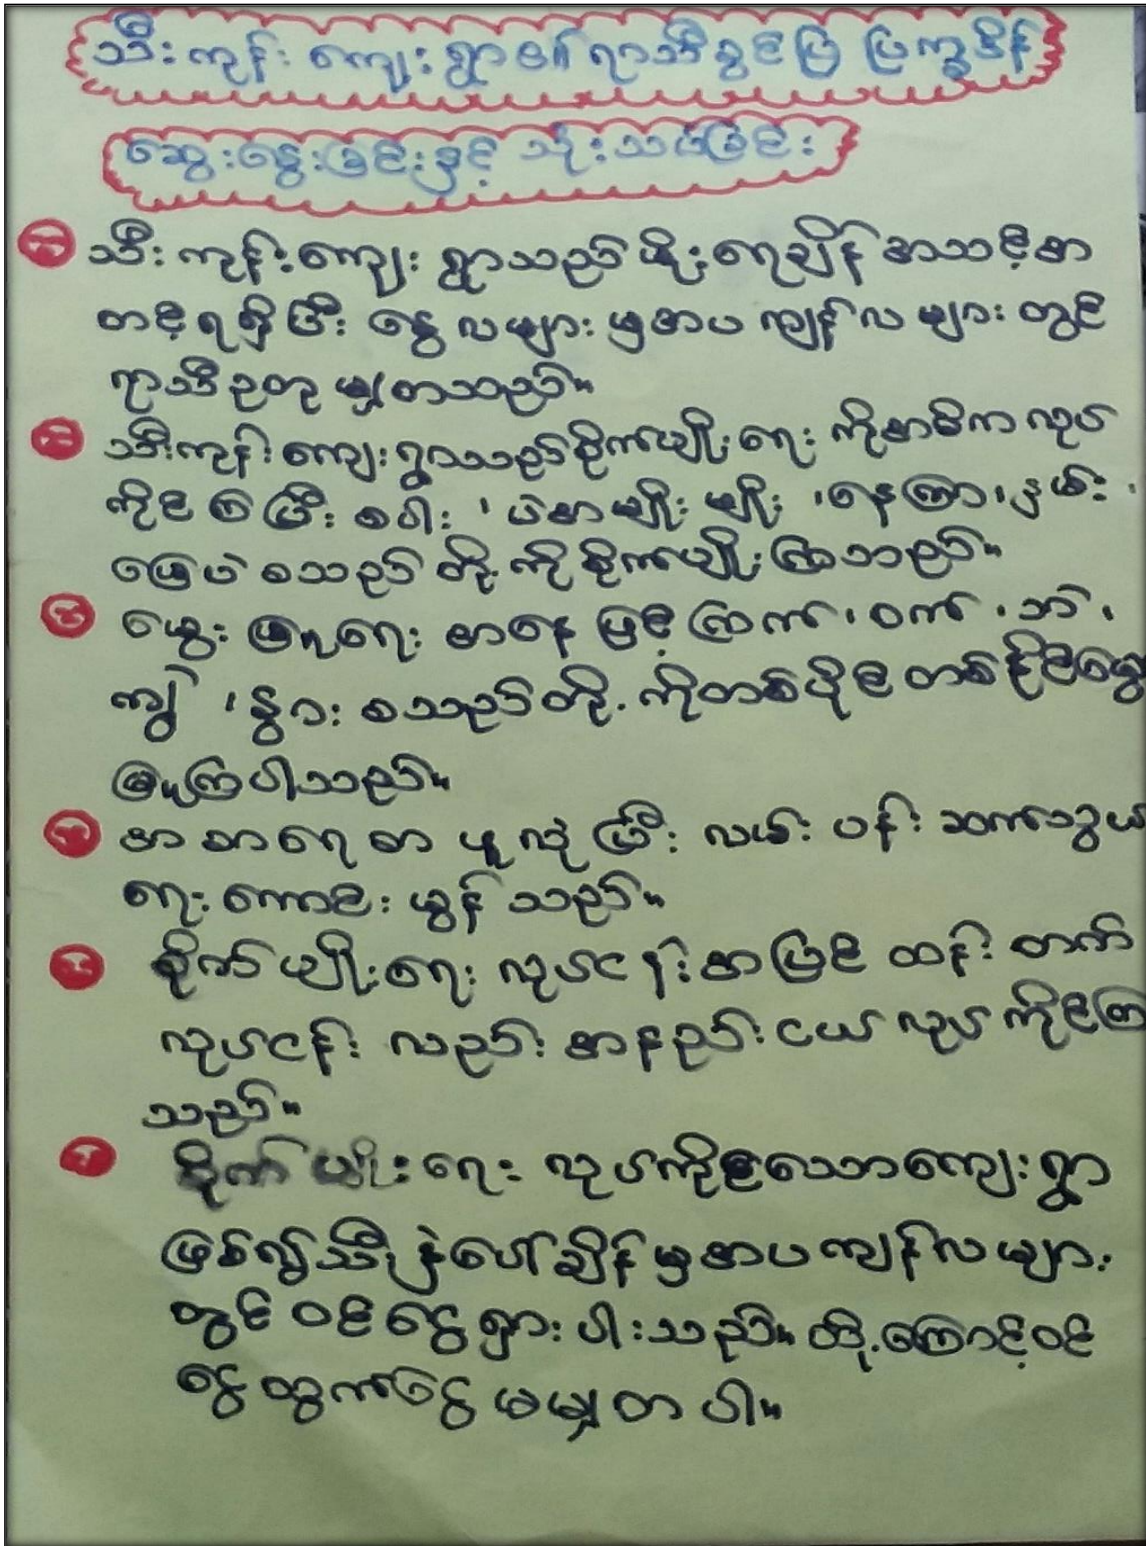 သီးကုန်းကျေးရွာ၏ရာသီခွင်ပြ ပြက္ခဒိန်
ဆွေးနွေးခြင်းနှင့် သုံးသပ်ခြင်း
၁ သီးကုန်းကျေးရွာသည်မိုးရေချိန် အသင့်အ
တင့်ရရှိပြီး နွေလများမှအပ ကျန်လများတွင်
ရာသီဥတုမျှတသည်။
၂ သီးကုန်းကျေးရွာသည်စိုက်ပျိုးရေး ကိုအဓိကလုပ်
ကိုင်ကြပြီး စပါး၊ပဲအမျိုးမျိုး၊နေကြာ၊နှမ်း၊
မြေပဲစသည်တို့ကိုစိုက်ပျိုးကြသည်။
၃ မွေးမြူရေး အနေဖြင့်ကြက်၊ဝက်၊ဘဲ၊
ကျွဲ၊နွားစသည်တို့ကိုတစ်ပိုင်တစ်နိုင်မွေး
မြူကြပါသည်။
၄ အစာရေစာ ပူလုံပြီး လမ်းပန်းဆက်သွယ်
ရေးကောင်းမွန်သည်။
၅ စိုက်ပျိုးရေးလုပ်ငန်းအပြင် ထန်းတက်
လုပ်ငန်းလည်းအနည်းငယ်လုပ်ကိုင်ကြ
သည်။
၆ စိုက်ပျိုးရေးလုပ်ကိုင်သောကျေးရွာ
ဖြစ်၍သီးနှံပေါ်ချိန်မှအပကျန်လများ
တွင်ဝင်ငွေရှားပါးသည်။ထို့ကြောင့်ဝင်
ငွေထွက်ငွေမမျှတပါ။